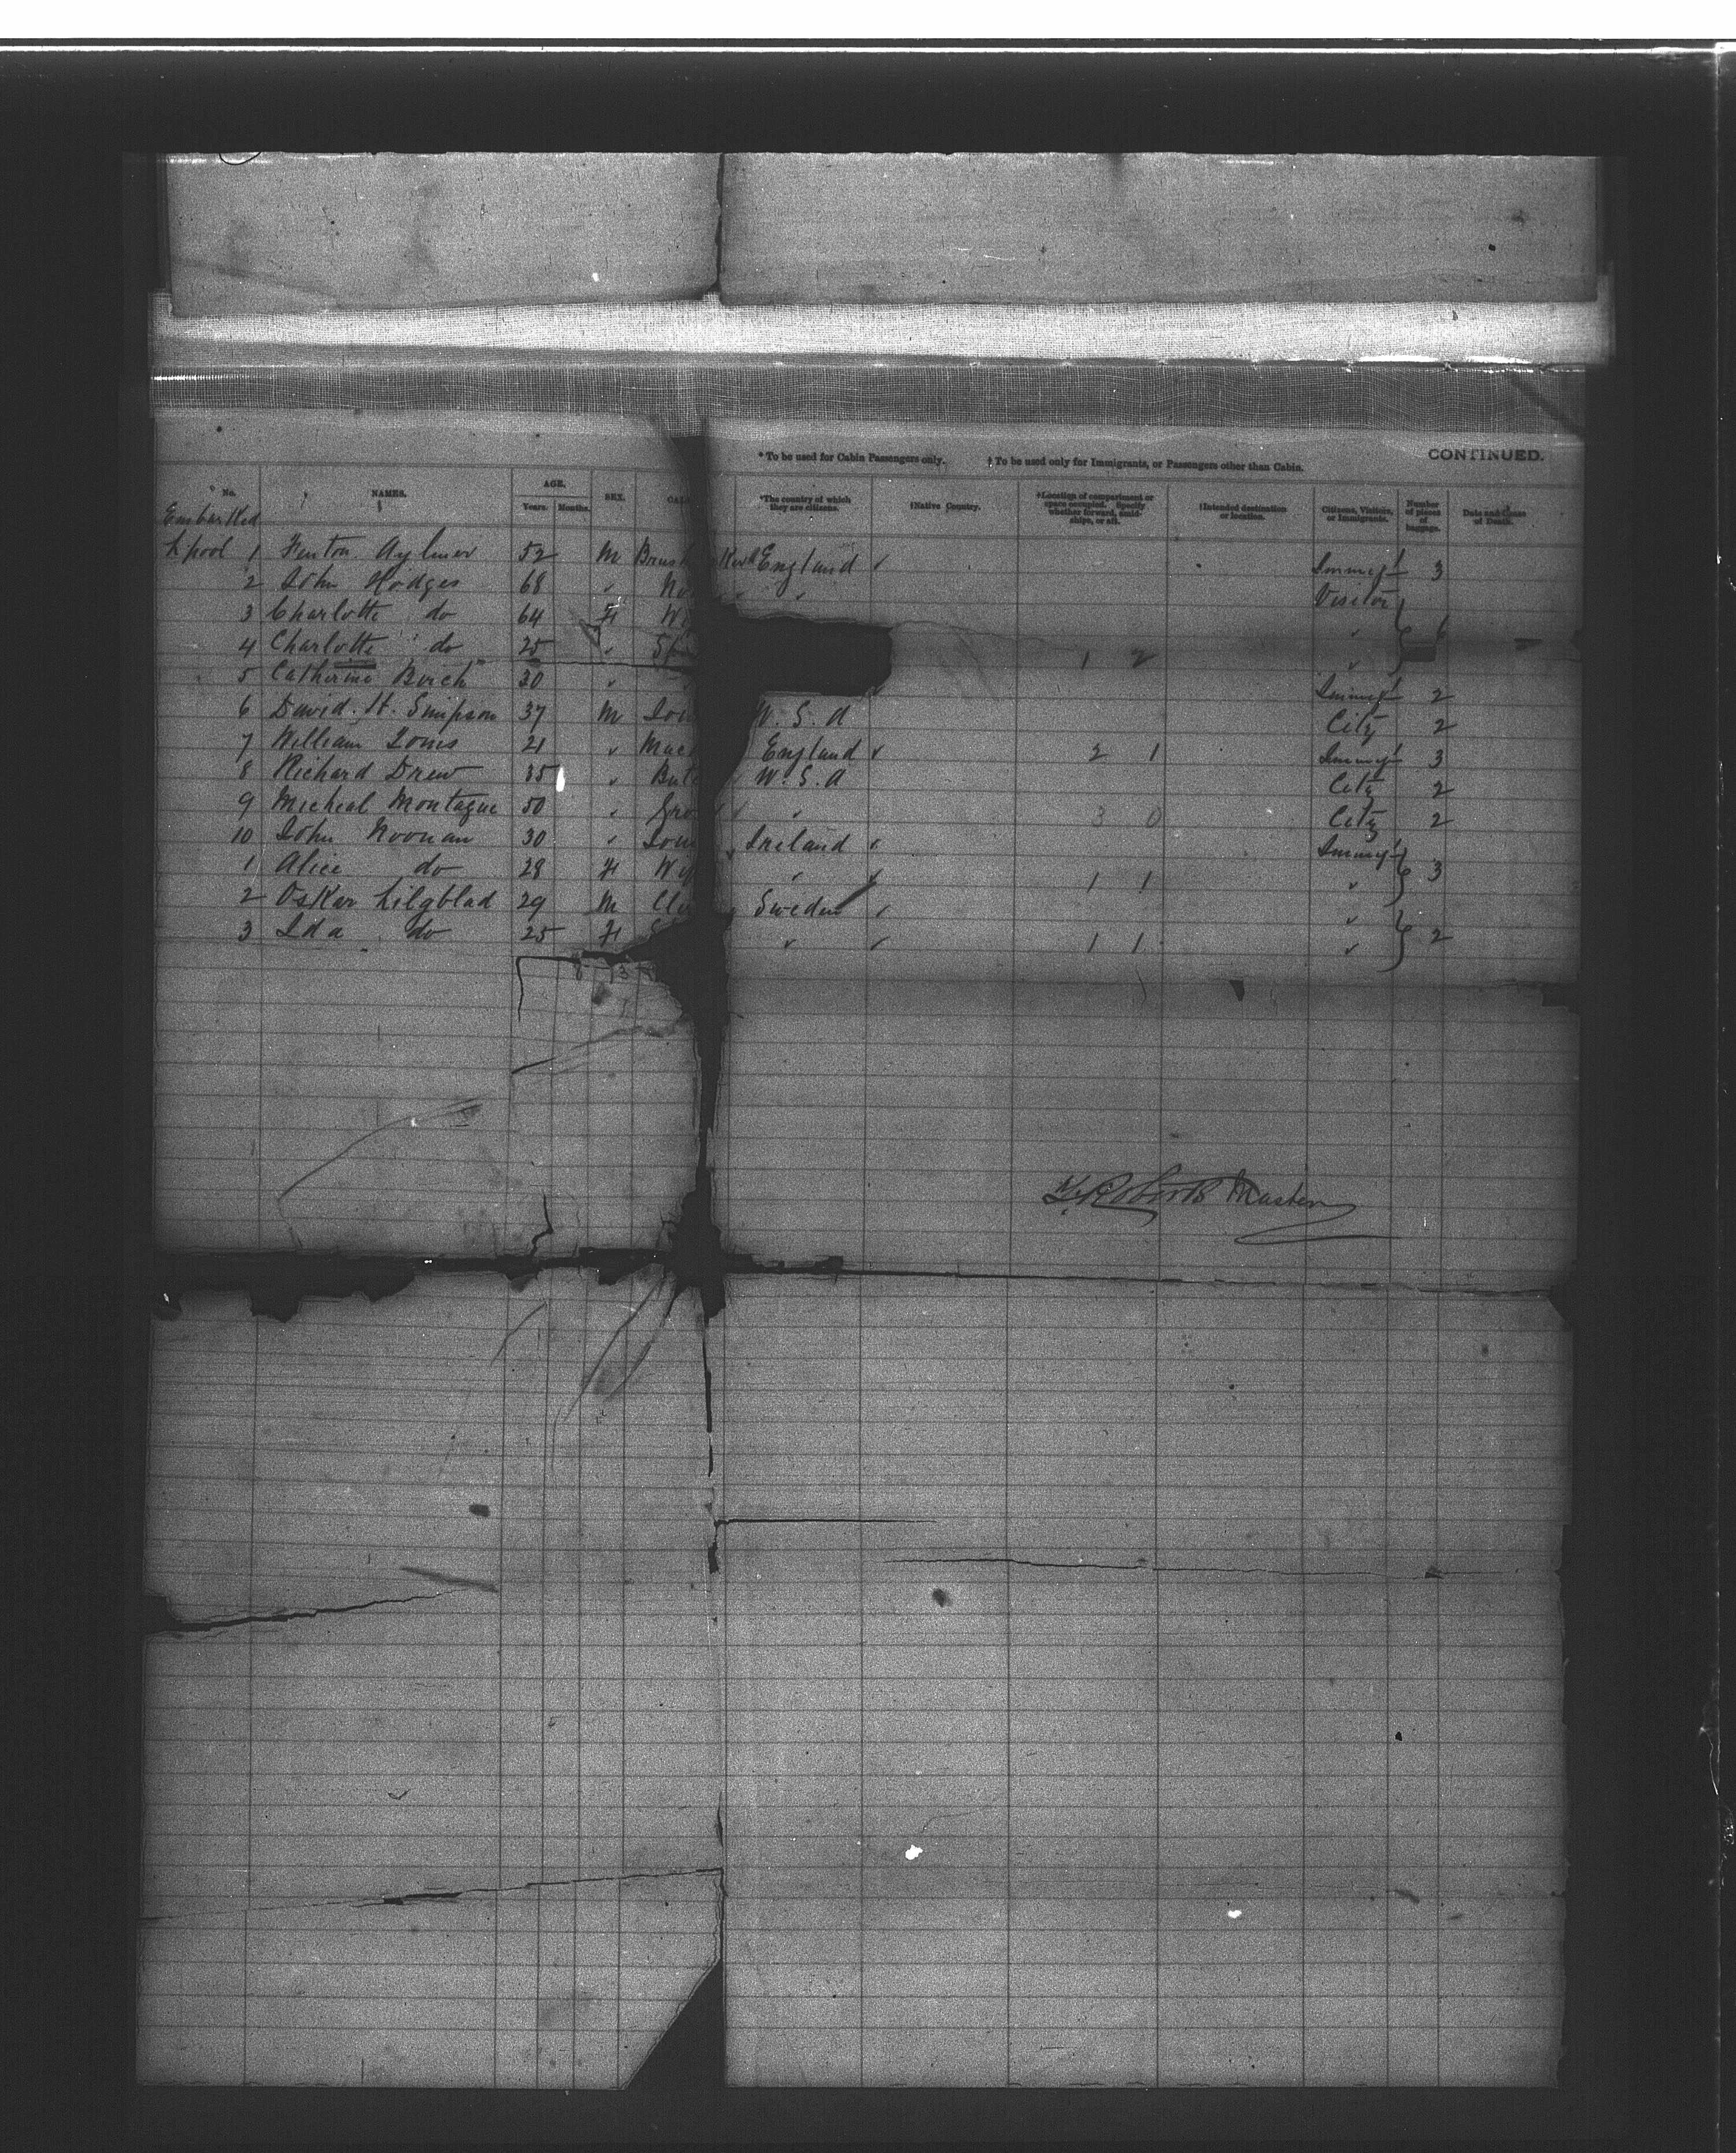 CONTINUED.
* To be used for Cabin Passengers only. † To be used only for Immigrants, or Passengers other than Cabin.
No. NAMES. AGE. Years. Months. SEX. *The country of which they are citizens. †Native Country. †Location of compartment or space occupied. Specify whether forward, amid-ships, or aft. †Intended destination or location. Citizens, Visitors, or Immigrants. Number of pieces of baggage. Date and Cause of Death.
Embarked
Lpool 1 Fenton Aylmer 52 M Brush England ✓ Immigt 3
2 John Hodges 68 " " Visitor
3 Charlotte do 64 F "
4 Charlotte do 25 " 1 2 "
5 Catherine Birch 30 " Immigt 2
6 David. H. Simpson 37 M U.S.A City 2
7 William Jones 21 " England ✓ 2 1 Immigt 3
8 Richard Drew 35 " U.S.A City 2
9 Micheal Montague 50 " " 3 0 City 2
10 John Noonan 30 " Ireland ✓ Immigt
1 Alice do 28 F " ✓ 1 1 " 3
2 Oskar Lilgblad 29 M Sweden ✓ "
3 Ida do 25 F " ✓ 1 1 " 2
Roberts Master